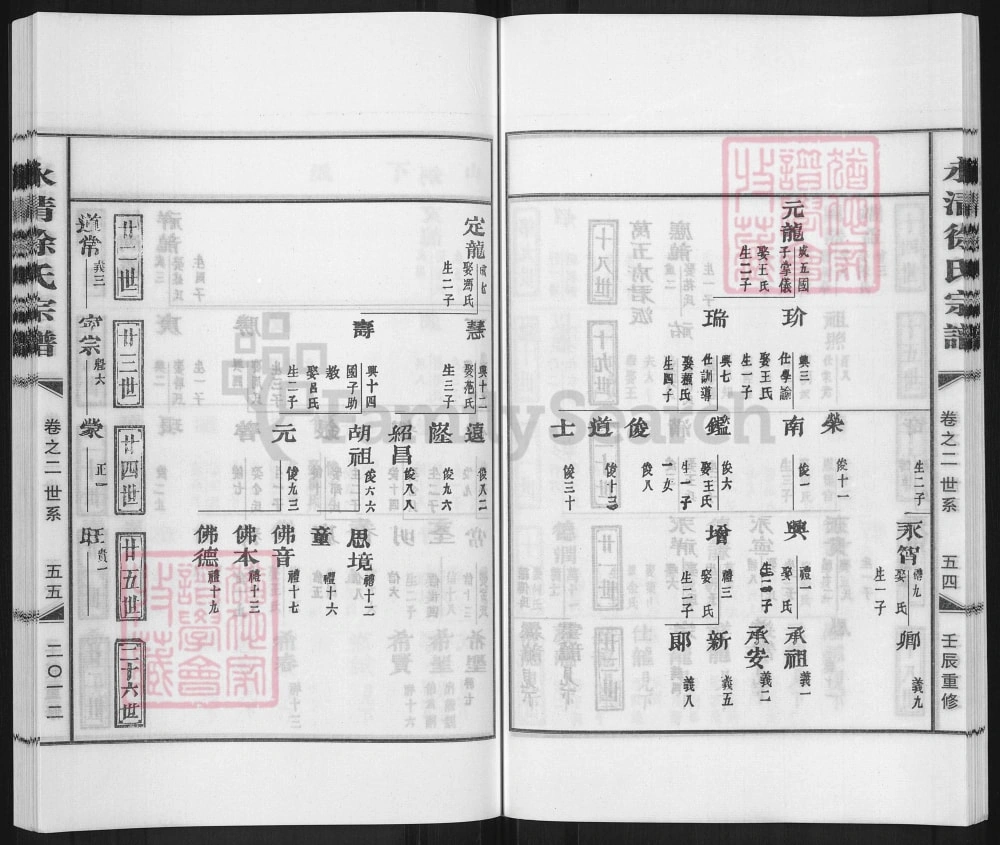 永清徐氏宗譜
卷之二 世系
五四
壬辰重修
生二子
永智
禮九
娶 氏
生一子
卿
義九
元龍
成五國
子掌儀
娶王氏
生二子
玠
興三
仕學諭
娶王氏
生一子
瑞
興七
仕訓導
娶賴氏
生四子
榮
俊十一
南
俊一
興
禮一
娶 氏
生二子
承祖
義一
承安
義二
鑑
俊六
娶王氏
生一子
一女
增
禮三
娶 氏
生二子
新
義五
郎
義八
俊
俊八
道
俊十三
士
俊三十
定龍
成七
娶馮氏
生二子
慧
興十二
娶范氏
生三子
壽
興十四
國子助
教
娶呂氏
生二子
遠
俊八二
隆
俊九六
紹昌
俊八八
胡祖
俊六六
思境
禮十二
童
禮十六
元
俊九三
佛音
禮十七
佛本
禮十三
佛德
禮十九
廿二世
廿三世
廿四世
廿五世
二十六世
道常
義三
宗
六
蒙
正一
旺
貴一
永清徐氏宗譜
卷之二 世系
五五
二〇一二
FamilySearch